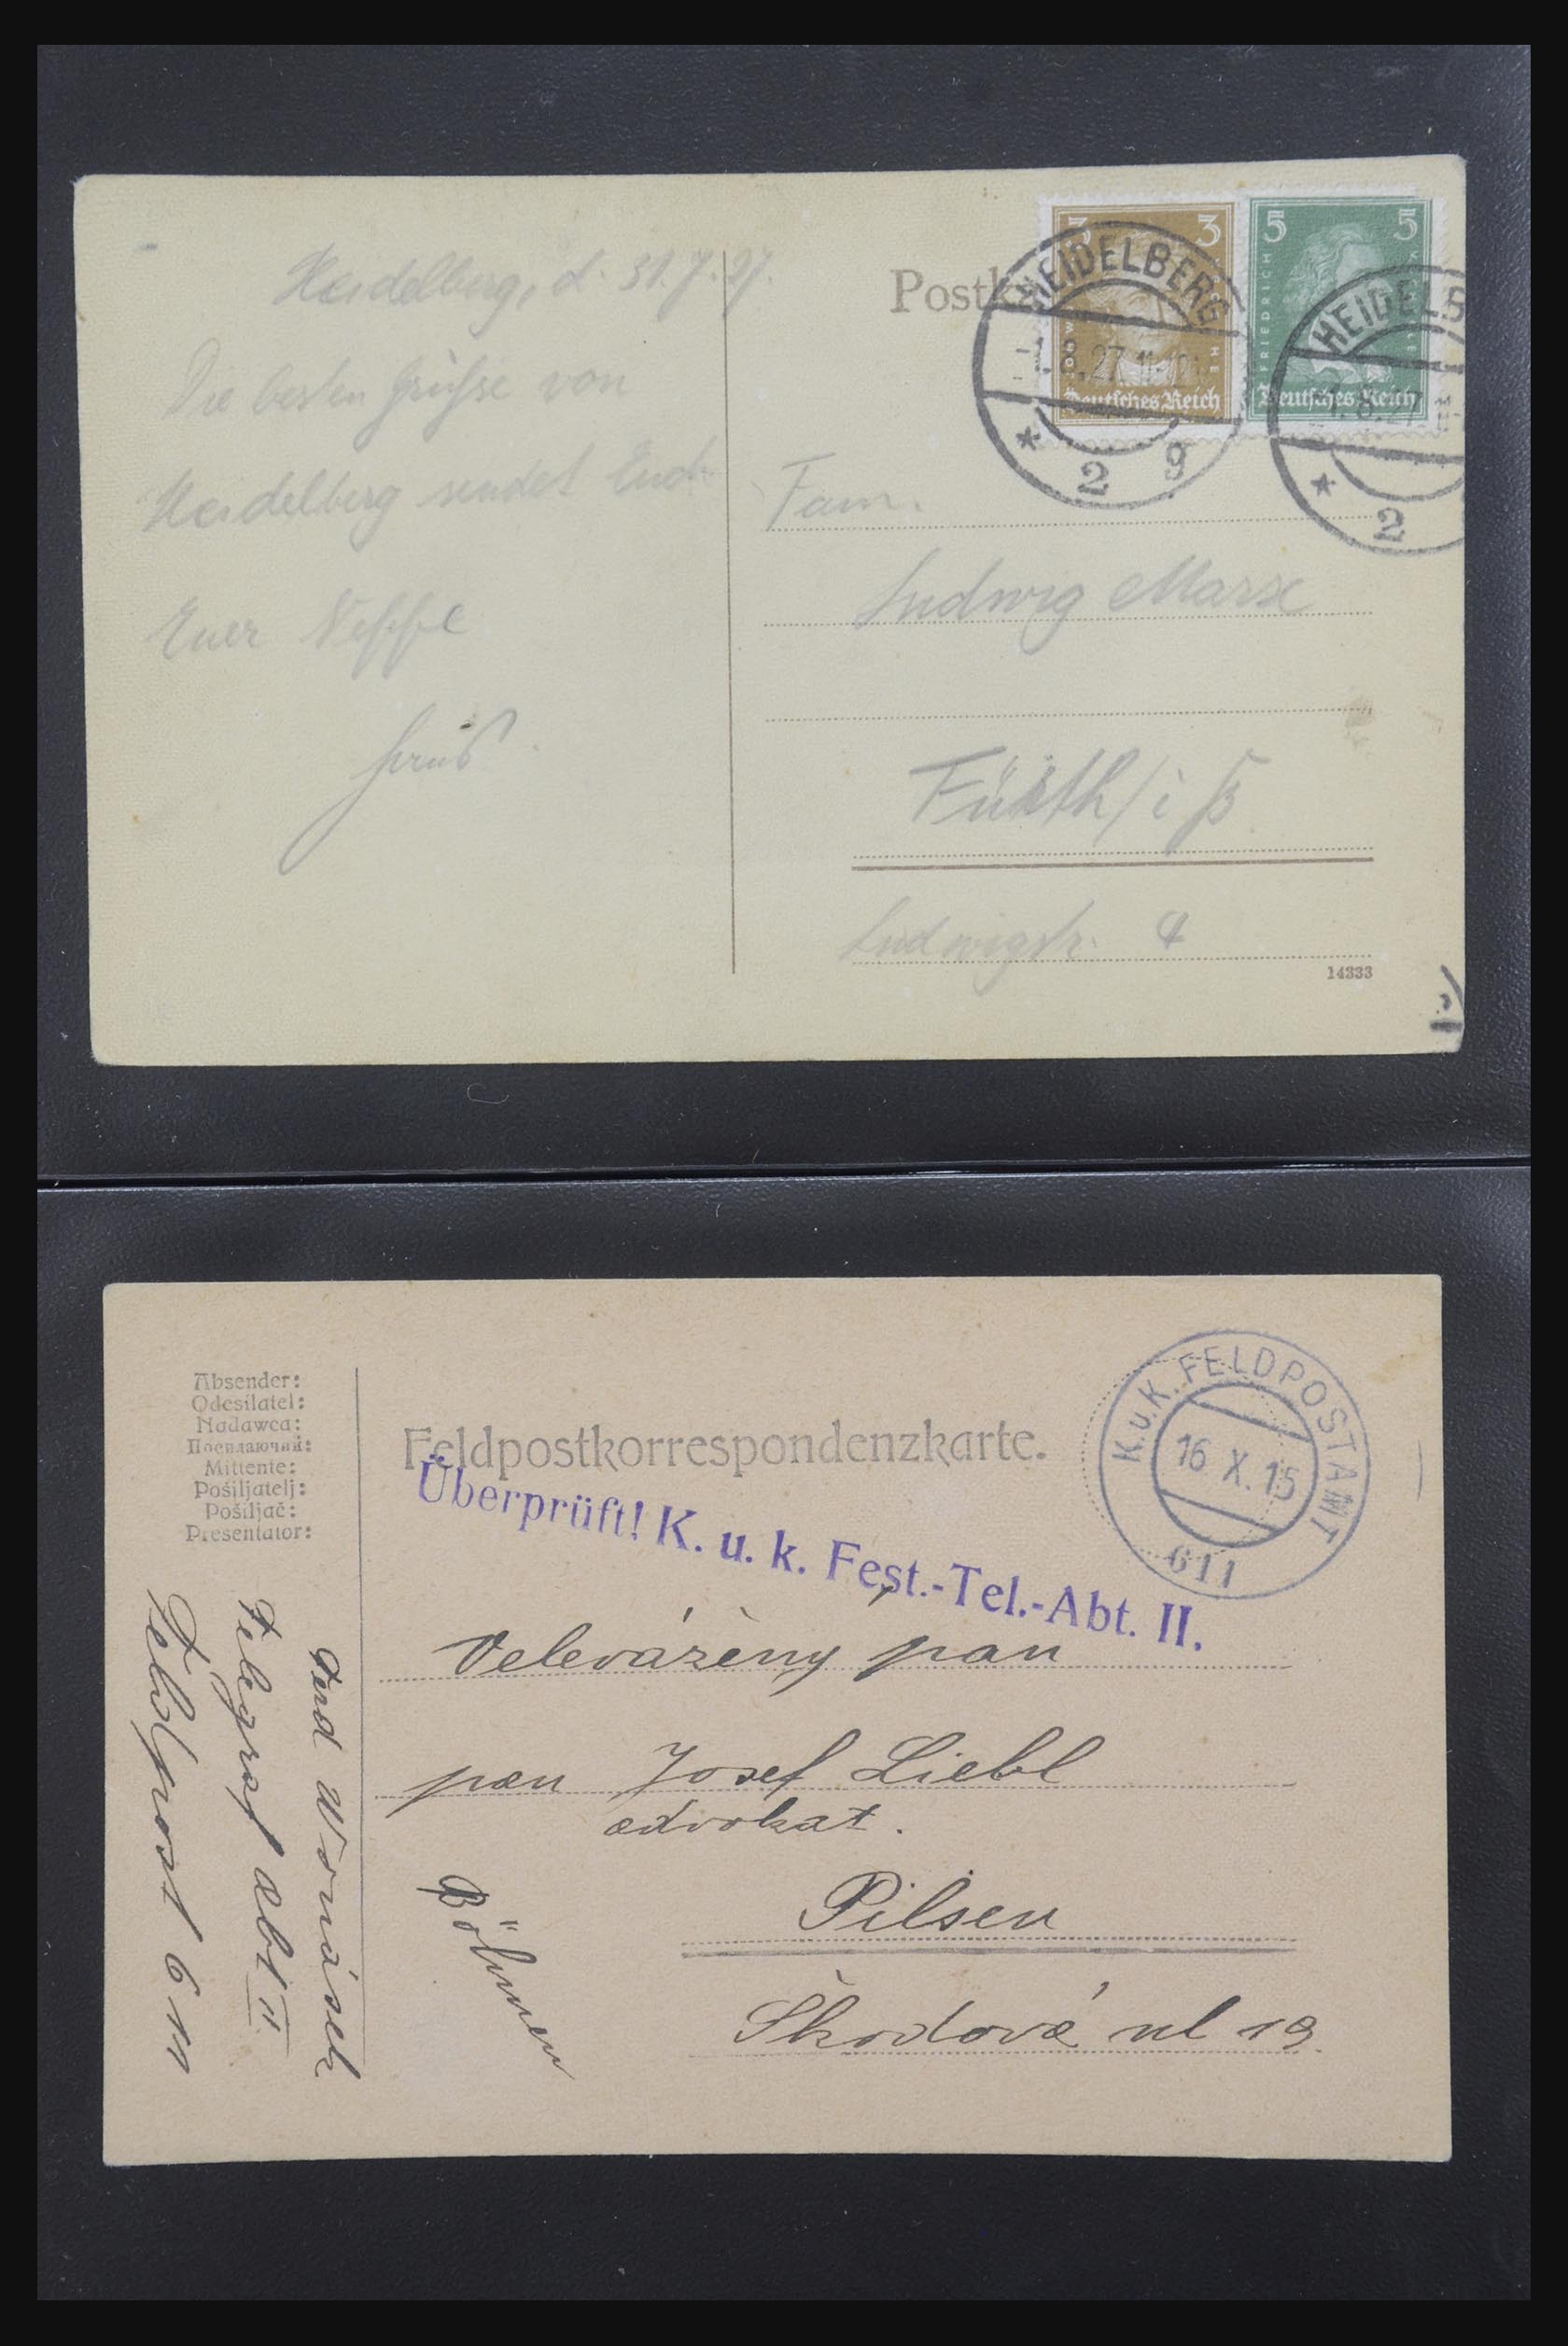 Heidelberg, d. 31.7.27.
Die besten Grüsse von
Heidelberg sendet Euch
Euer Neffe
Postka
3 3
Deutsches Reich
5 5
FRIEDRICH
Deutsches Reich
HEIDELBERG
-1.8.27 11-12
* 2 g
HEIDELB
1.8.27 11-
* 2
Fam.
Ludwig Marx
Fürth / i B
Ludwigstr. 4
14333
Absender:
Odesílatel:
Nadawca:
Посилаючий:
Mittente:
Pošiljatelj:
Pošiljač:
Presentator:
Ferd
Telegraf abt II
Feldpost 611
Feldpostkorrespondenzkarte.
K.u.K. FELDPOSTAMT
16 X. 15
611
Überprüft! K. u. k. Fest.-Tel.-Abt. II.
Velevážený pan
pan Josef Liebl
advokat.
Pilsen
Böhmen
Škodová ul 19.